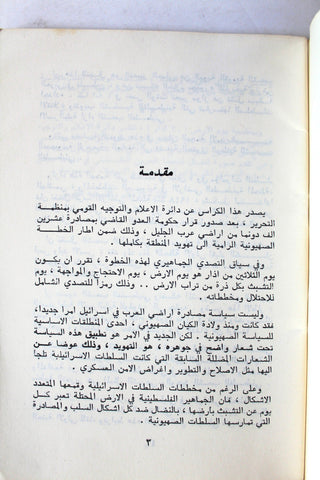 مقدمة
يصدر هذا الكراس عن دائرة الاعلام والتوجيه القومي بمنظمة
التحرير ، بعد صدور قرار حكومة العدو القاضي بمصادرة عشرين
الف دونما من اراضي عرب الجليل ، وذلك ضمن اطار الخطة
الصهيونية الرامية الى تهويد المنطقة بكاملها .
وفي سياق التصدي الجماهيري لهذه الخطوة ، تقرر ان يكون
يوم الثلاثين من اذار هو يوم الارض ، يوم الاحتجاج والمواجهة ، يوم
التشبث بكل ذرة من تراب الارض .. وذلك رمزاً للتصدي الشامل
للاحتلال ومخططاته .
وليست سياسة مصادرة اراضي العرب في اسرائيل امرا جديدا،
فقد كانت ومنذ ولادة الكيان الصهيوني ، احدى المنطلقات الاساسية
للسياسة الصهيونية . لكن الجديد في الامر هو تطبيق هذه السياسة
تحت شعار واضح في جوهره ، هو التهويد ، وذلك عوضا عن
الشعارات المضللة السابقة التي كانت السلطات الاسرائيلية تلجأ
اليها مثل الاصلاح والتطوير واغراض الامن العسكري .
وعلى الرغم من مخططات السلطات الاسرائيلية وقمعها المتعدد
الاشكال ، فان الجماهير الفلسطينية في الارض المحتلة تعبر كل
يوم عن التشبث بارضها ، بالنضال ضد كل اشكال السلب والمصادرة
التي تمارسها السلطات الصهيونية .
٣